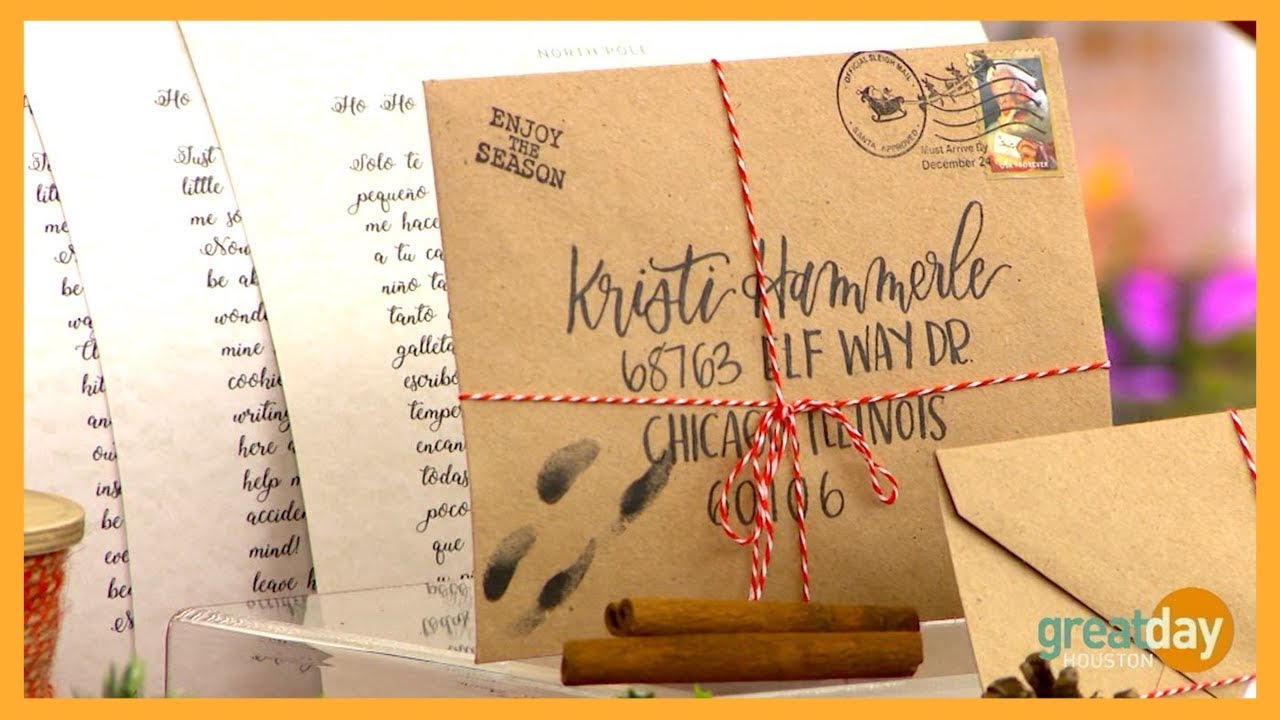 NORTH POLE
Ho
Just
little
me so
Now
be ab
wond
mine
cookie
writing
here a
help m
accide
mind!
leave h
Ho Ho
Solo te
pequeño
me hace
a tu ca
niño ta
tanto
galleta
escribo
tempe
encan
todas
poco
que
ENJOY
THE
SEASON
OFFICIAL SLEIGH MAIL
SANTA APPROVED
Must Arrive By
December 24
USA FOREVER
Kristi Hammerle
68763 ELF WAY DR.
CHICAGO ILLINOIS
60106
greatday
HOUSTON